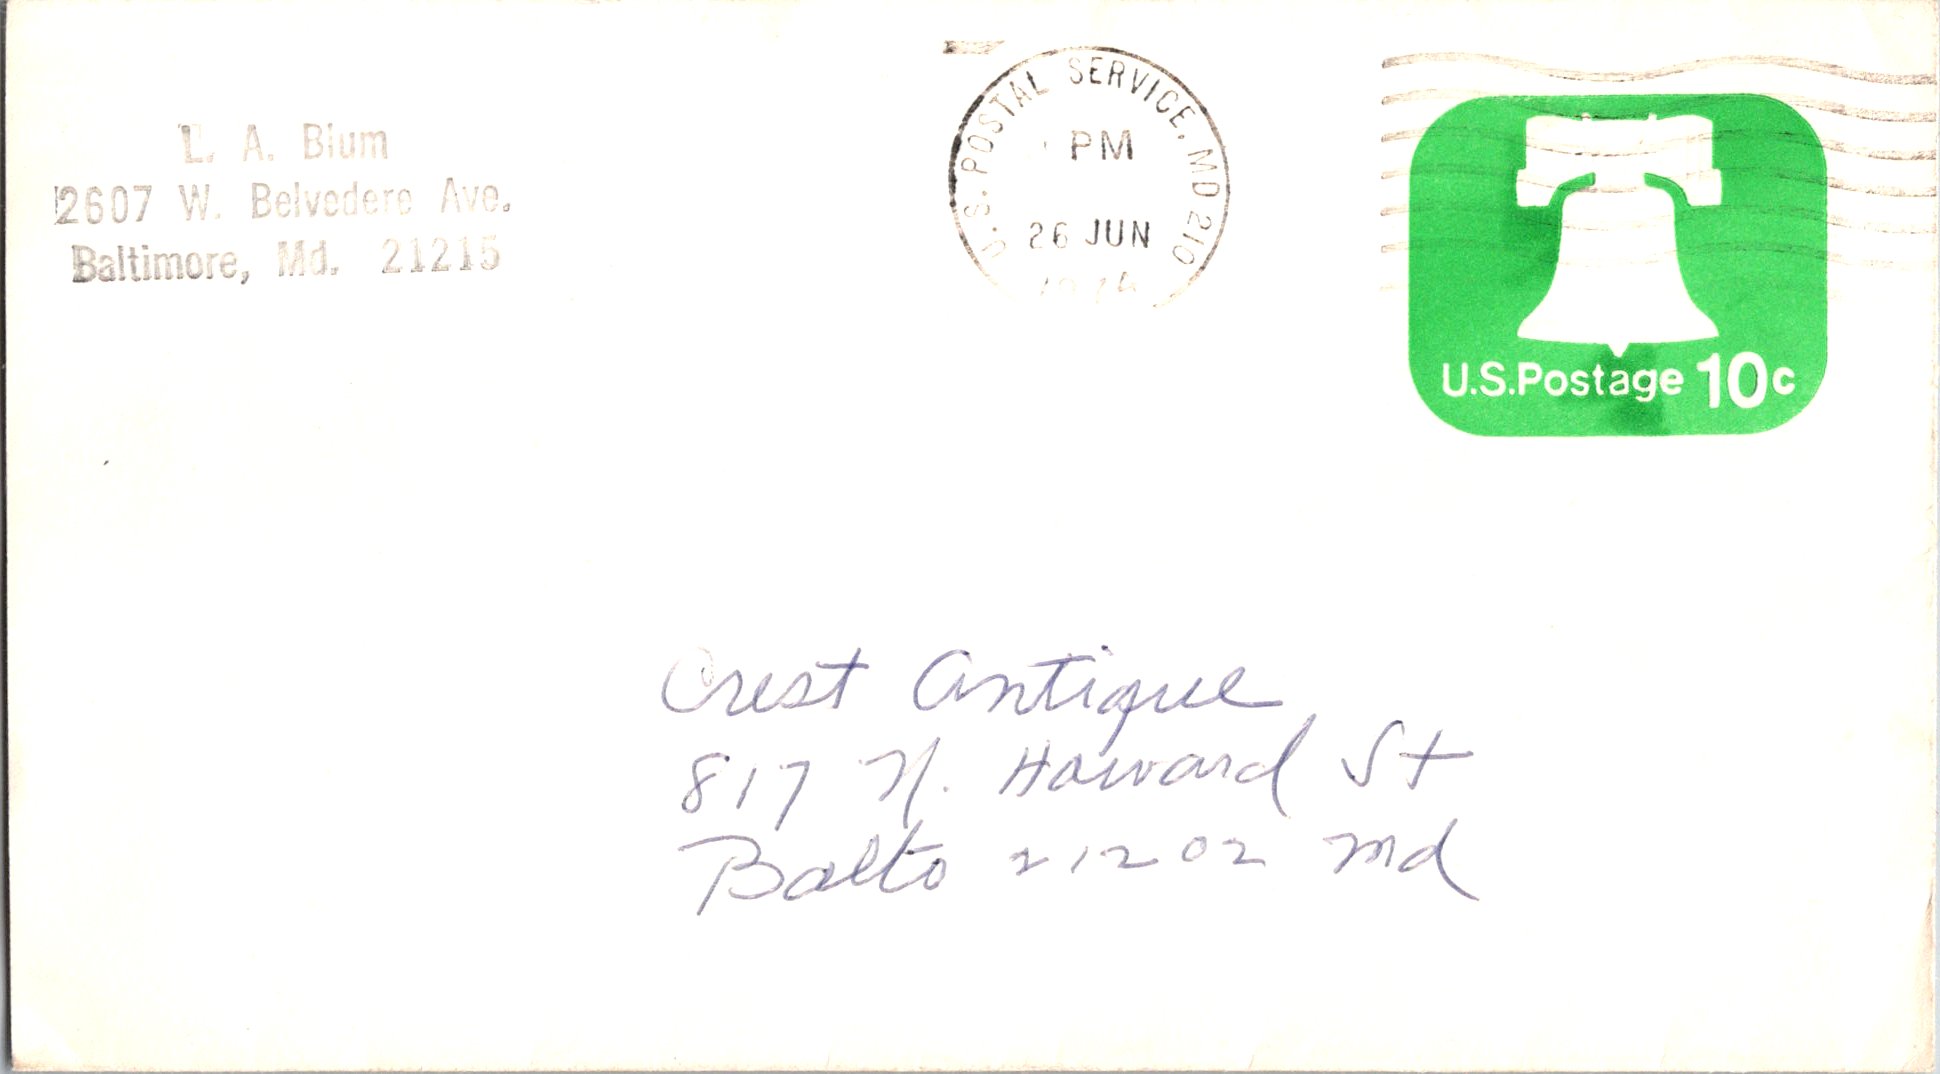 L. A. Blum
2607 W. Belvedere Ave.
Baltimore, Md. 21215
U.S. POSTAL SERVICE, MD 210
PM
26 JUN
U.S.Postage 10c
Crest Antique
817 N. Howard St
Balto 21202 Md